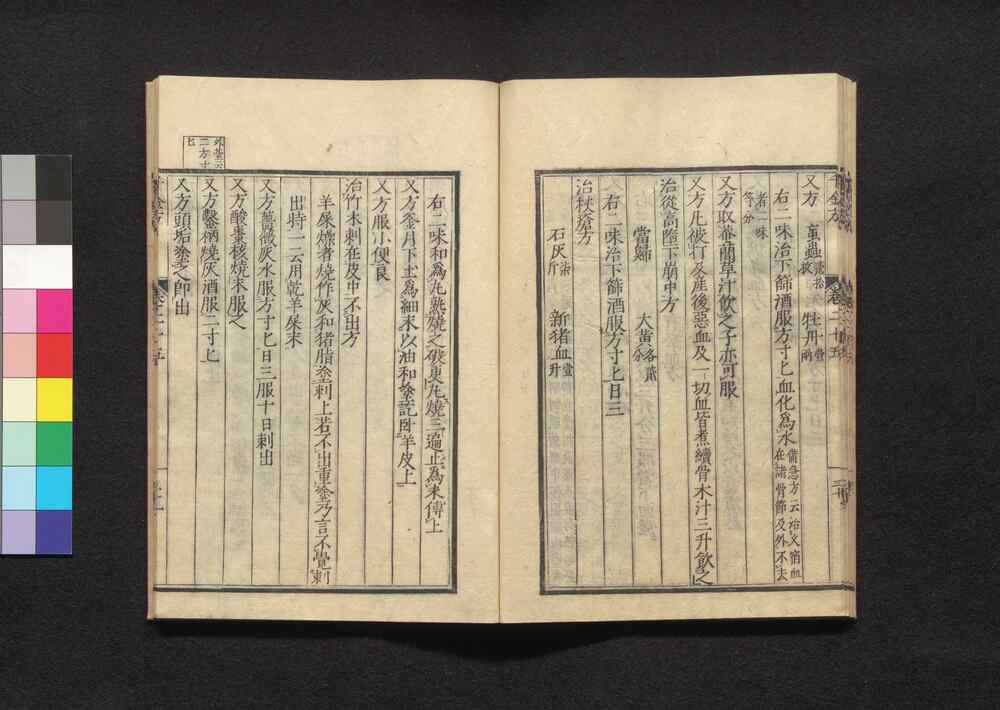 又方 䖟蟲貳拾枚 牡丹壹兩
右二味治下篩酒服方寸匕血化爲水備急方云治久宿血在諸骨節及外不去
者二味等分
又方取菴䕡草汁飲之子亦可服
又方凡被打及產後惡血及一切血皆煮續骨木汁三升飲之
治從高墮下崩中方
當歸 大黃各貳分
右二味治下篩酒服方寸匕日三
治杖瘡方
石灰柒斤 新猪血壹升
右二味和爲丸熟燒之破更丸燒三遍止爲末傅上
又方釜月下土爲細末以油和塗訖臥羊皮上
又方服小便良
治竹木刺在皮中不出方
羊屎燥者燒作灰和猪脂塗刺上若不出重塗乃言不覺刺
出時一云用乾羊屎末
又方薔薇灰水服方寸匕日三服十日刺出
又方酸棗核燒末服之
又方鑿柄燒灰酒服二寸匕
外臺云二方寸匕
又方頭垢塗之即出
千金方 卷二十五